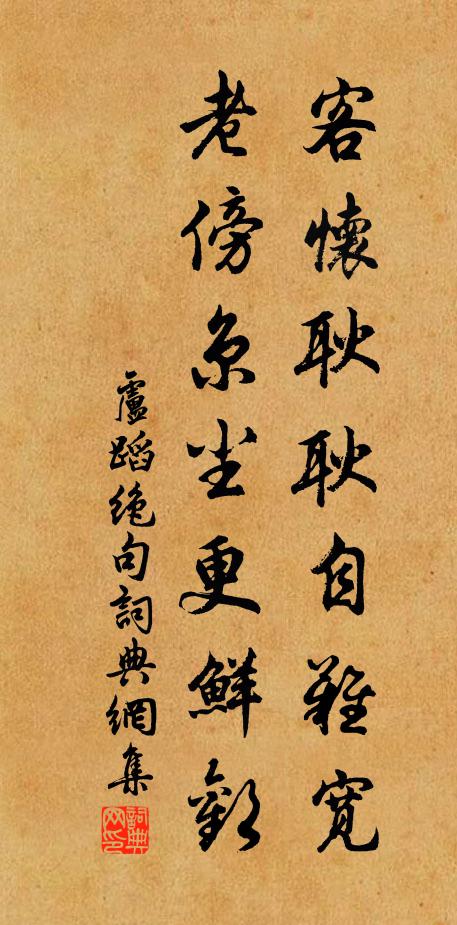 客懷耿耿自難寬
老傍京塵更鮮歡
盧蹈絶句詞典網集
詞典网印